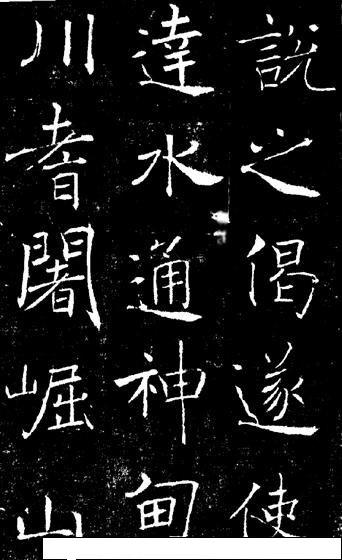 說之偈遂使
達水通神甸
川耆闍崛山